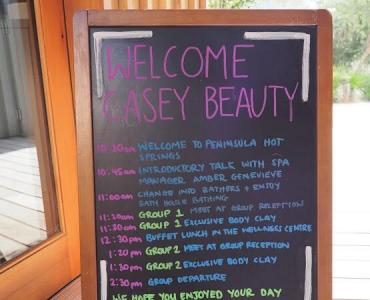 WELCOME
CASEY BEAUTY
10:30am WELCOME TO PENINSULA HOT
SPRINGS
10:45am INTRODUCTORY TALK WITH SPA
MANAGER AMBER GENEVIEVE
11:00am CHANGE INTO BATHERS + ENJOY
BATH HOUSE BATHING
11:20am GROUP 1 MEET AT GROUP RECEPTION
11:30am GROUP 1 EXCLUSIVE BODY CLAY
12:30pm BUFFET LUNCH IN THE WELLNESS CENTRE
1:20pm GROUP 2 MEET AT GROUP RECEPTION
1:30pm GROUP 2 EXCLUSIVE BODY CLAY
2:30pm GROUP DEPARTURE
WE HOPE YOU ENJOYED YOUR DAY